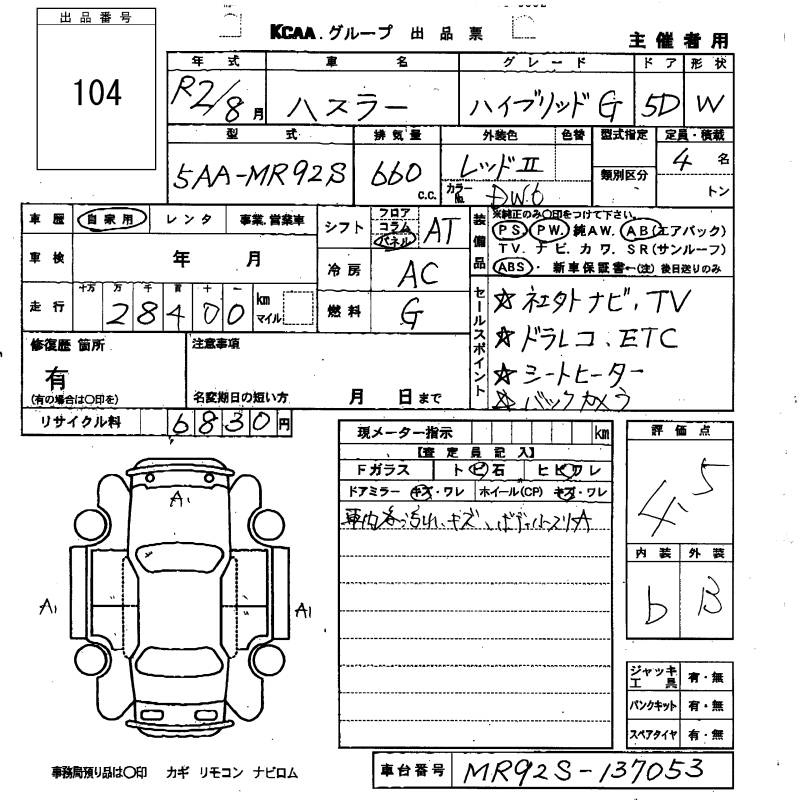 出品番号
104
KCAA.グループ 出品票
主催者用
年式 車名 グレード ドア 形状
R2/8月 ハスラー ハイブリッド G 5D W
型式 排気量 外装色 色替 型式指定 定員・積載
5AA-MR92S 660 c.c. レッドII 類別区分 4名
カラーNo. DW6 トン
車歴 自家用 レンタ 事業.営業車
シフト フロア コラム パネル AT
装備品 ※純正のみ○印をつけて下さい。
PS. PW. 純AW. AB(エアバック)
TV. ナビ. カワ. SR(サンルーフ)
ABS・ 新車保証書←(注) 後日送りのみ
車検 年 月
冷房 AC
走行 十万 万 千 百 十 一
28400 km マイル
燃料 G
セールスポイント
☆ 社外ナビ、TV
☆ ドラレコ、ETC
☆ シートヒーター
☆ バックカメラ
修復歴 箇所
有
(有の場合は○印を)
注意事項
名変期日の短い方 月 日まで
リサイクル料 6830円
現メーター指示 km
【査定員記入】
Fガラス トビ石 ヒビワレ
ドアミラー キズ・ワレ ホイール(CP) キズ・ワレ
車内
キズ、
評価点
4.5
内装 外装
b B
A1
A1 A1
ジャッキ工具 有・無
パンクキット 有・無
スペアタイヤ 有・無
事務局預り品は○印 カギ リモコン ナビロム
車台番号 MR92S-137053